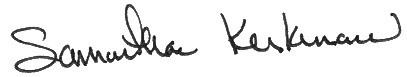 Samantha Kerkman